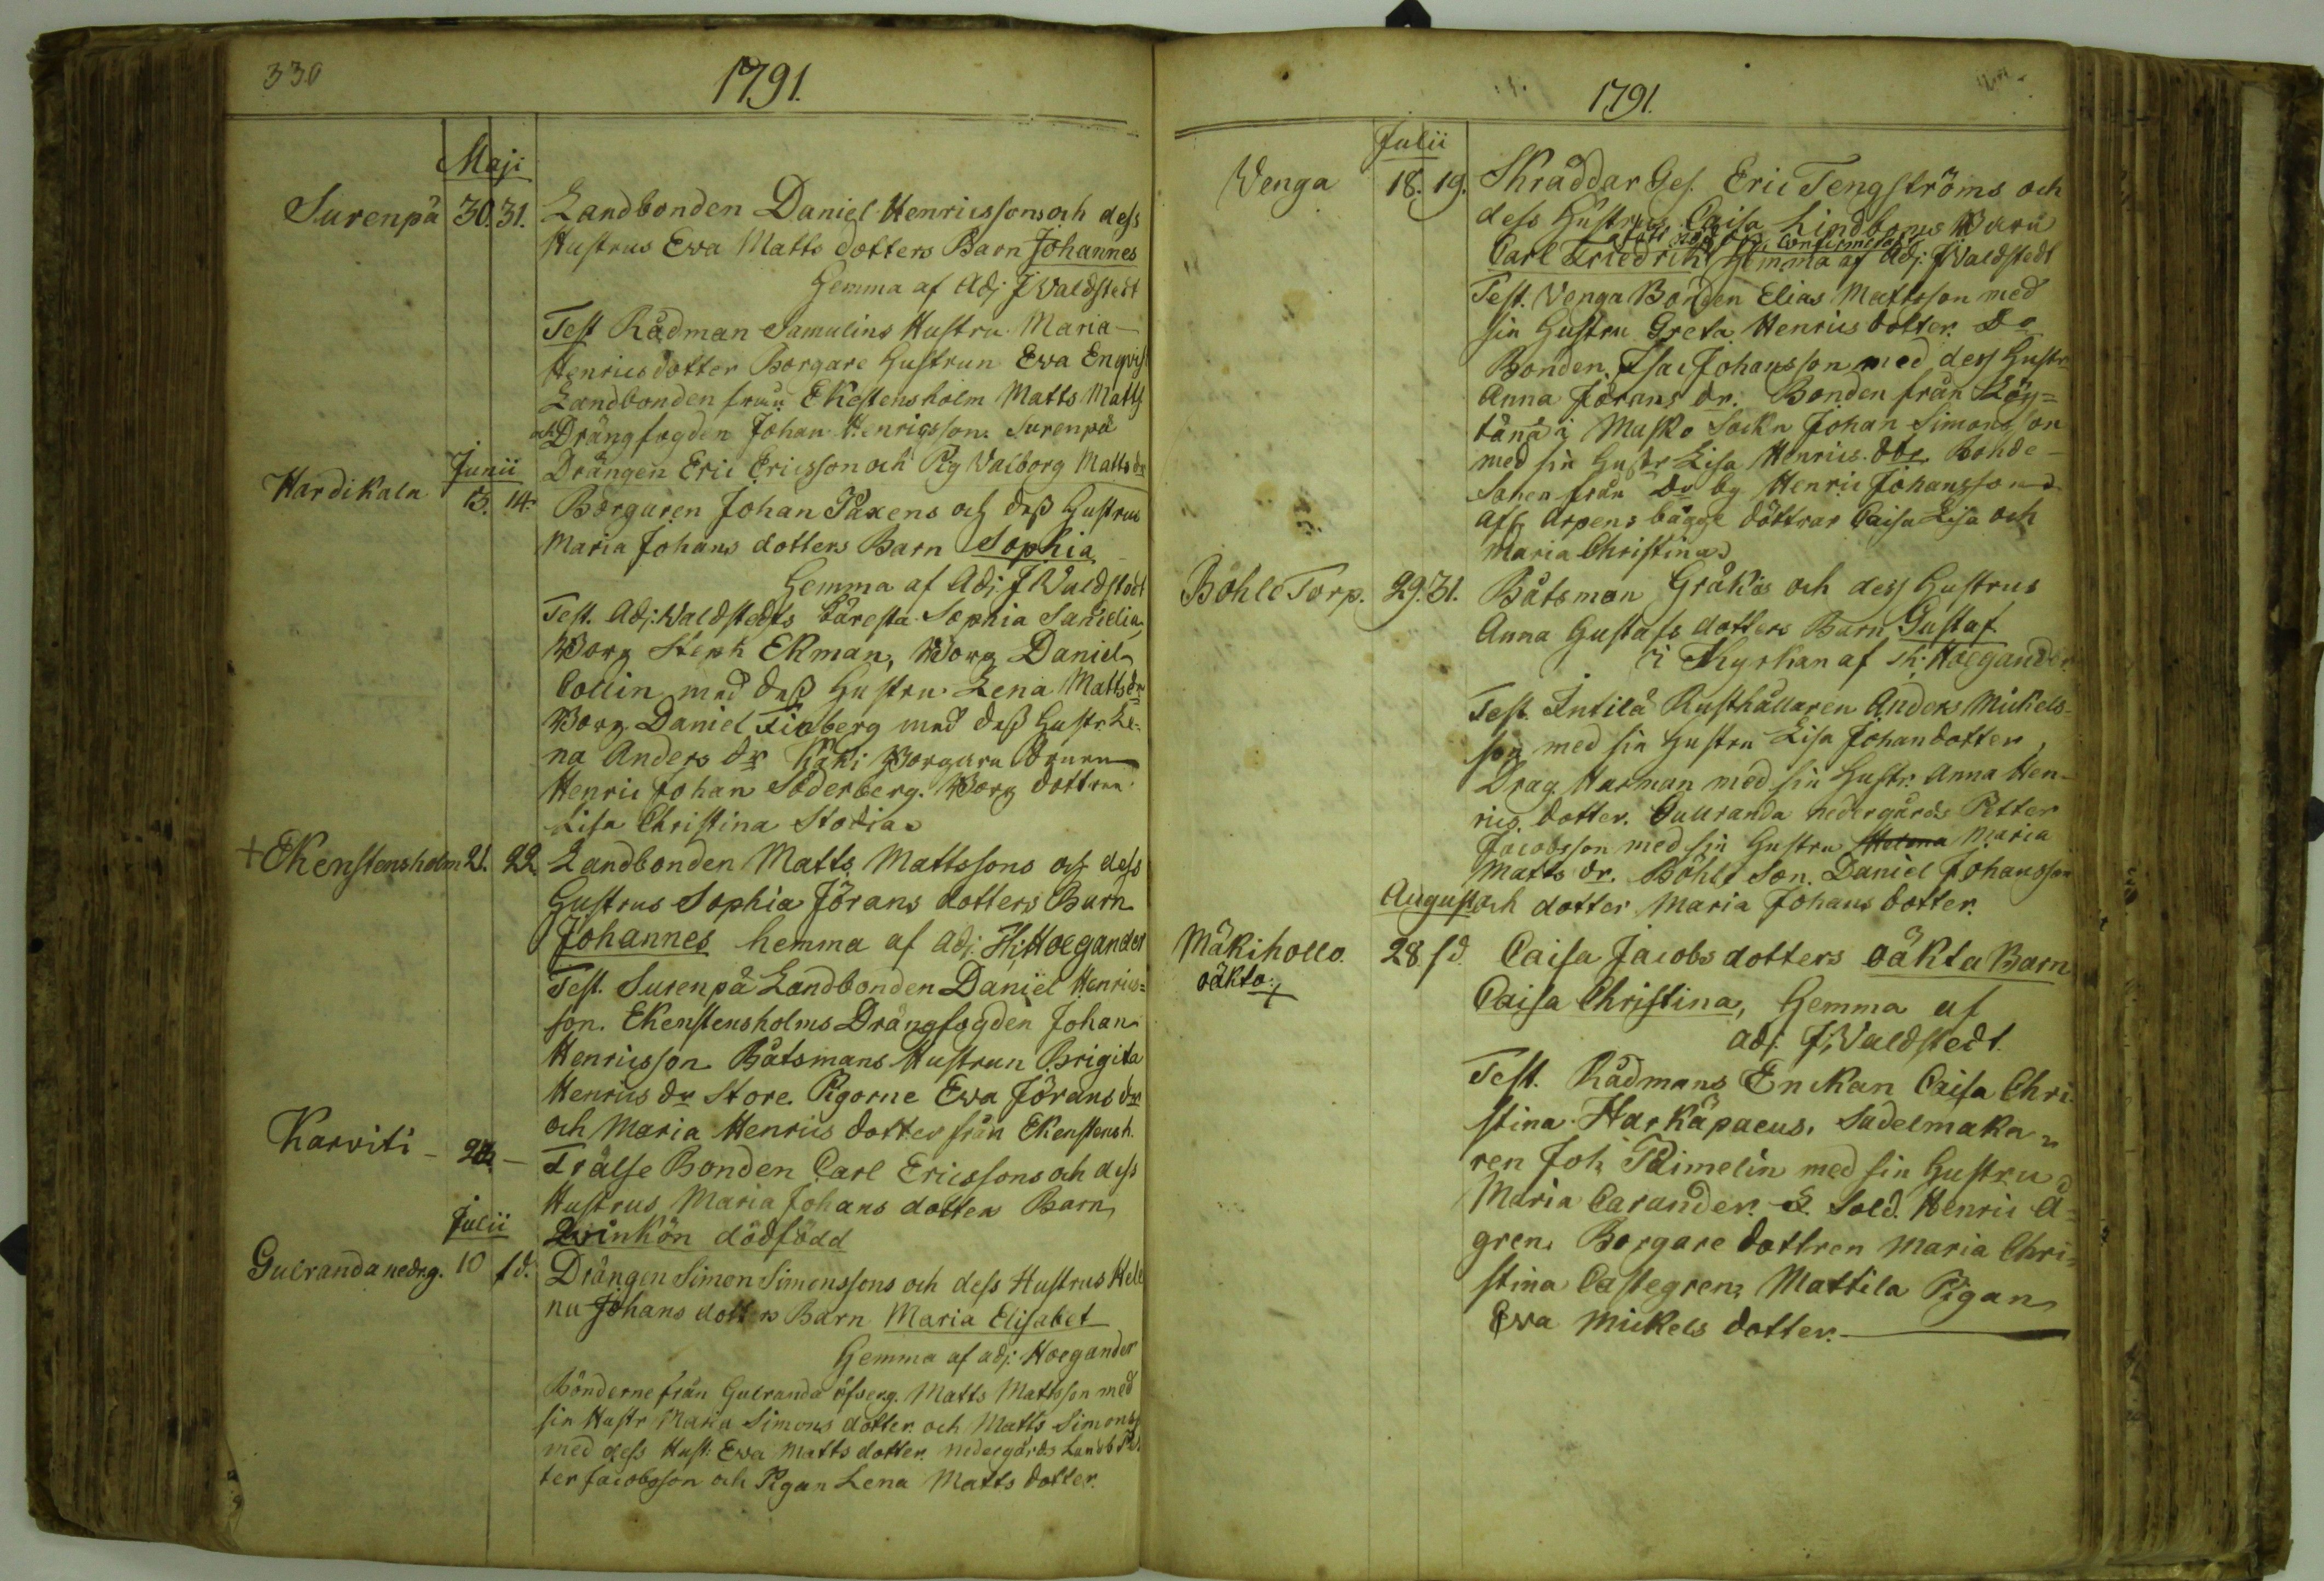 330
1791.
Maji
Surenpä 30. 31. Landbonden Daniel Henricssons och dess
Hustrus Ewa Matts dotters Barn Johannes
Hemma af Adj: J Waldstedt
Test Rådman Samulins Hustru Maria
Henricsdotter Borgare Hustrun Ewa Enqvist
Landbonden från Ekestensholm Matts Matts
och Drängfogden Johan Henricsson. Surenpä
Drängen Eric Ericsson och Pig Walborg Matts dr
Junii
Hardikala 13. 14. Borgaren Johan Paxens och dess Hustrus
Maria Johans dotters Barn Sophia
Hemma af Adj: J Waldstedt
Test. Adj: Waldstedts Käresta Sophia
Borg Steph Ekman, Borg Daniel
Collin med dess Hustru Lena Matts dr
Borg. Daniel Finberg med dess Hustr. Le-
na Anders dr Borgare
Henric Johan Söderberg. Borg dottren
Lisa Christina Stodia
+ Ekenstensholm 21. 22. Landbonden Matts Mattssons och dess
Hustrus Sophia Jörans dotters Barn
Johannes hemma af adj: H: Hoegander
Test. Surenpä Landbonden Daniel Henrics=
son. Ekenstensholms Drängfogden Johan
Henricsson Båtsmans Hustrun Brigita
Henrics dr Store. Pigorne Ewa Jörans dr
och Maria Henrics dotter från Ekenstensh.
Karviti - Frälse Bonden Carl Ericssons och dess
Hustrus Maria Johans dotters Barn
Julii
Qvinkön dödfödd
Gulranda nedrg. 10 s.d. Drängen Simon Simonssons och dess Hustrus Hele
na Johans dotters Barn Maria Elisabet
Hemma af adj: Hoegander
Bönderne från Gulranda öfverg. Matts Mattsson med
sin Hustr Maria Simons dotter och Matts Simons
med dess Hust: Ewa Matts dotter. nedergårds Landb Pet
ter Jacobsson och Pigan Lena Matts dotter.
1791.
Julii
Venga 18. 19. Skräddar Ges. Eric Tengströms och
dess Hustrus Caisa Lindboms Barn
Carl Friedrik Hemma af Adj: J Waldstedt
Test. Venga Bonden Elias Mattsson med
sin Hustru Greta Henrics dotter. Do
Bonden Isac Johansson med dess Hustr
Anna Jörans dr. Bonden från Löy=
tänä i Masko Sockn Johan Simonsson
med sin Hustr Lisa Henrics. dtr. Bonde-
Sonen från Do by Henric Johansson
Afl. Arpens bägge döttrar Caisa Lisa och
Maria Christina
Böhle Torp. 29. 31. Båtsman Gråkås och dess Hustrus
Anna Gustafs dotters Barn Gustaf
i Kyrkan af H: Hoegander
Test. Intilä Rusthållaren Anders Mickels-
son med sin Hustru Lisa Johandotter,
Drag Harman med sin Hustr. Anna Hen-
rics. dotter. Gulranda nedergårds Petter
Jacobsson med sin Hustru Helena Maria
Matts dr. Böhle Son. Daniel Johansson
Augusti och dotter Maria Johans dotter.
Mäkihollo. 28 s.d. Caisa Jacobs dotters oäkta Barn
oäkta. Caisa Christina, Hemma af
adj. J: Waldstedt.
Test. Rådmans Enckan Caisa Chri-
stina Harkäpaeus, Sadelmaka=
ren Joh: Palmelin med sin Hustru
Maria Carander. Sold. Henric Å=
gren. Borgare dottren Maria Chri=
stina Castegren, Mattila Pigan
Ewa Mickels dotter.